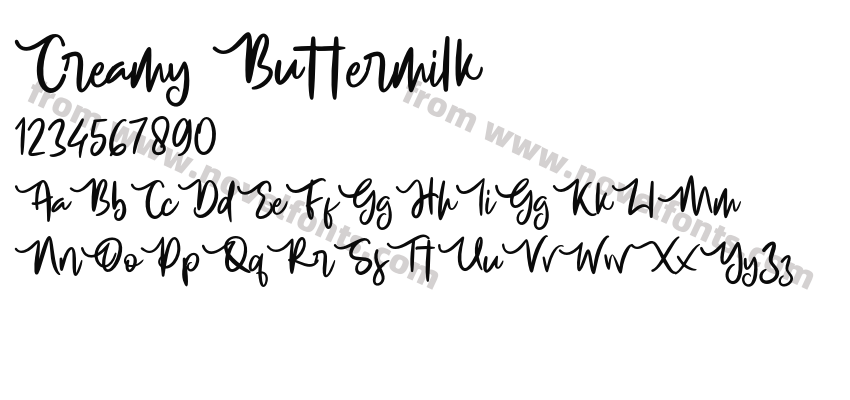 Creamy Buttermilk
1234567890
Aa Bb Cc Dd Ee Ff Gg Hh Ii Gg Kk Ll Mm
Nn Oo Pp Qq Rr Ss Tt Uu Vv Ww Xx Yy Zz
from www.novalfonts.com
from www.novalfonts.com